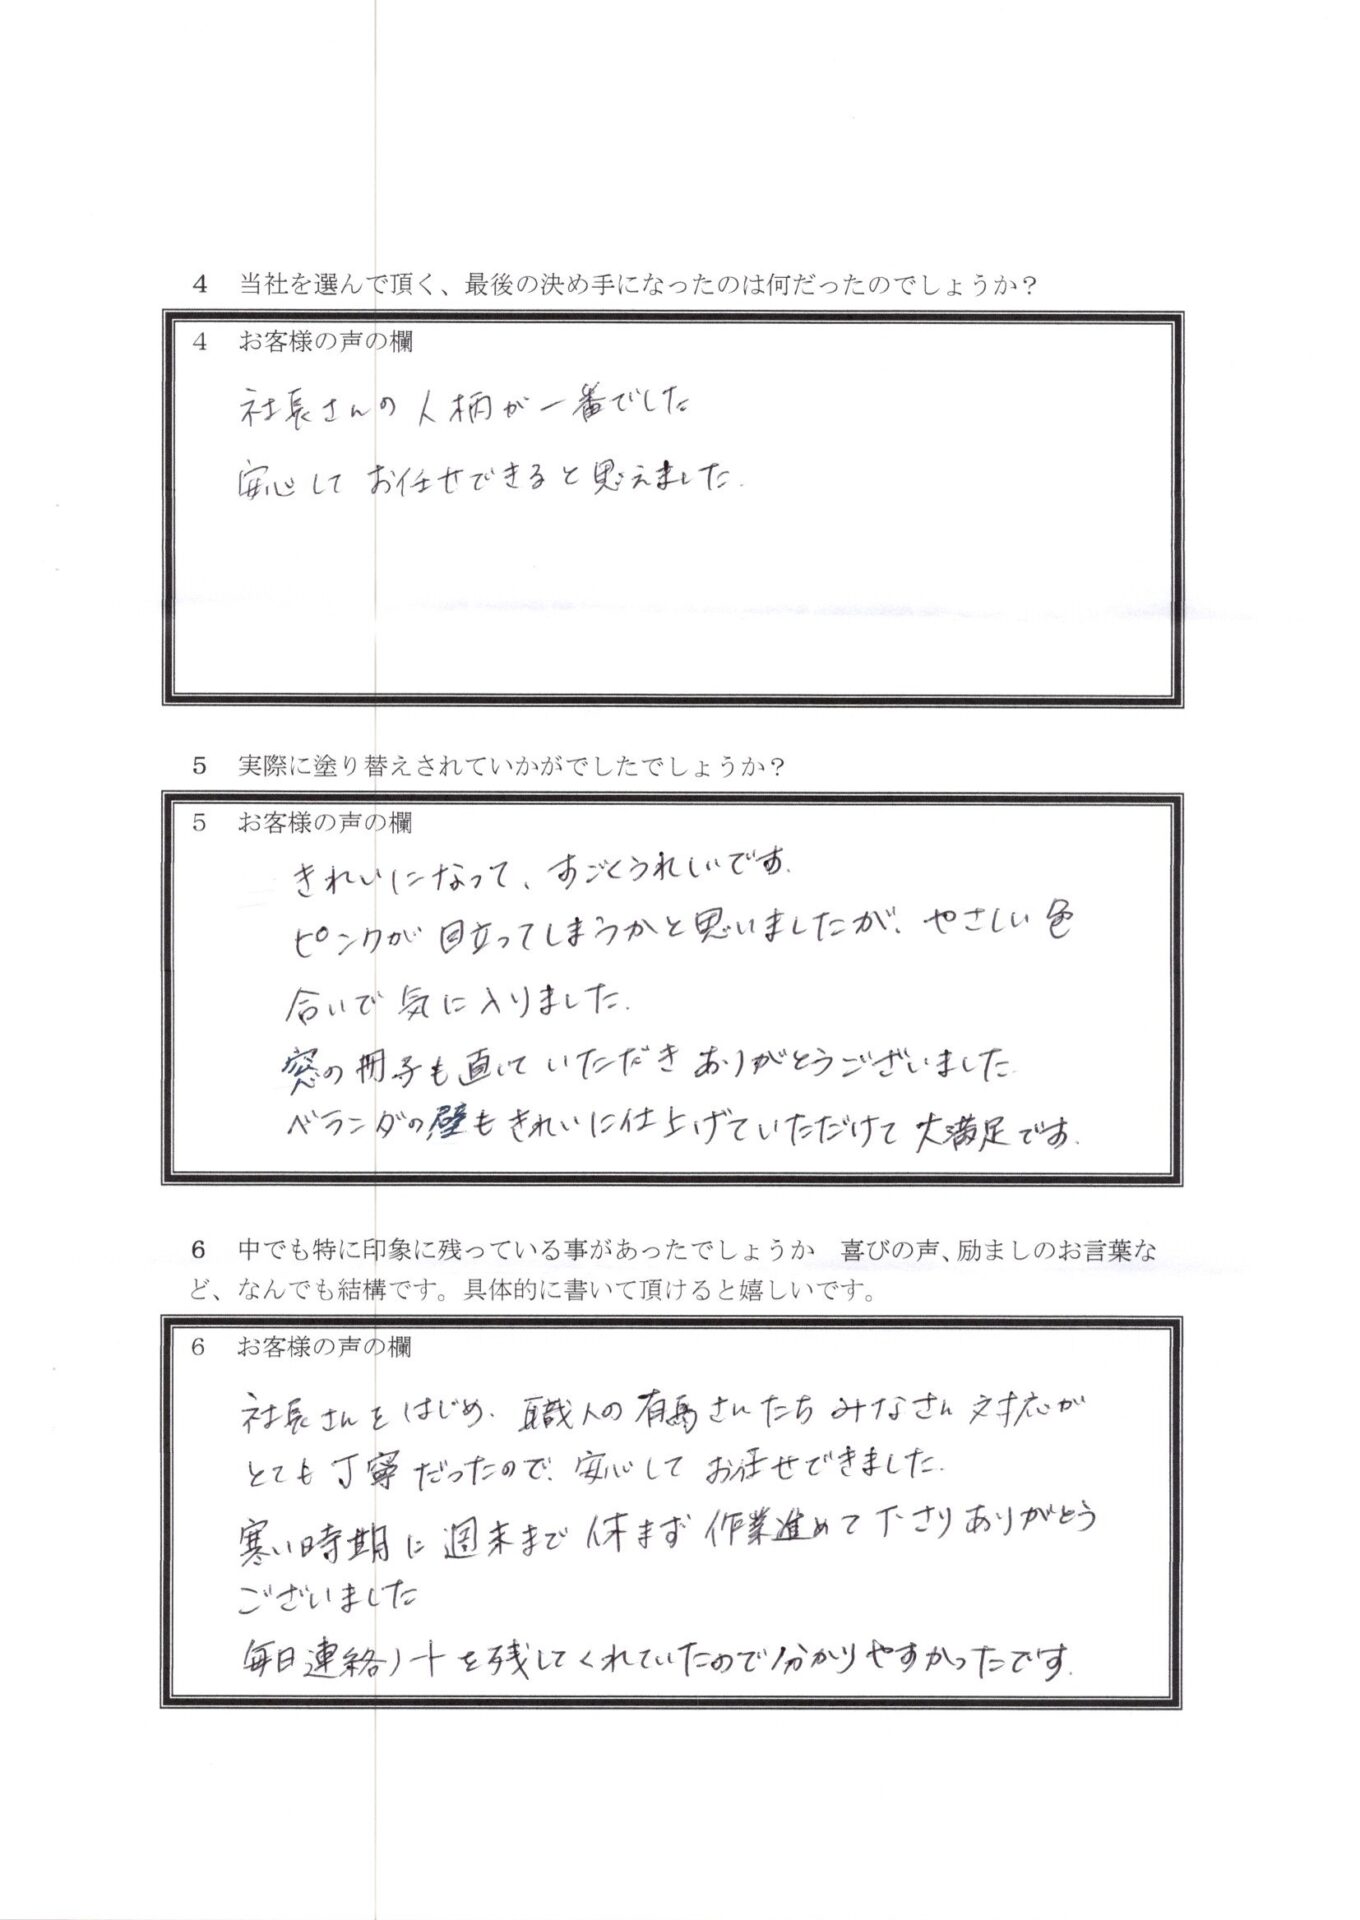 4 当社を選んで頂く、最後の決め手になったのは何だったのでしょうか？
4 お客様の声の欄
社長さんの人柄が一番でした
安心してお任せできると思えました.
5 実際に塗り替えされていかがでしたでしょうか？
5 お客様の声の欄
きれいになって、すごくうれしいです.
ピンクが目立ってしまうかと思いましたが、やさしい色
合いで気に入りました.
窓の冊子も直していただきありがとうございました.
ベランダの壁もきれいに仕上げていただけて大満足です.
6 中でも特に印象に残っている事があったでしょうか 喜びの声、励ましのお言葉な
ど、なんでも結構です。具体的に書いて頂けると嬉しいです。
6 お客様の声の欄
社長さんをはじめ、職人の有馬さんたちみなさん対応が
とても丁寧だったので、安心してお任せできました.
寒い時期に週末まで休まず作業進めて下さりありがとう
ございました
毎日連絡ノートを残してくれていたので分かりやすかったです.